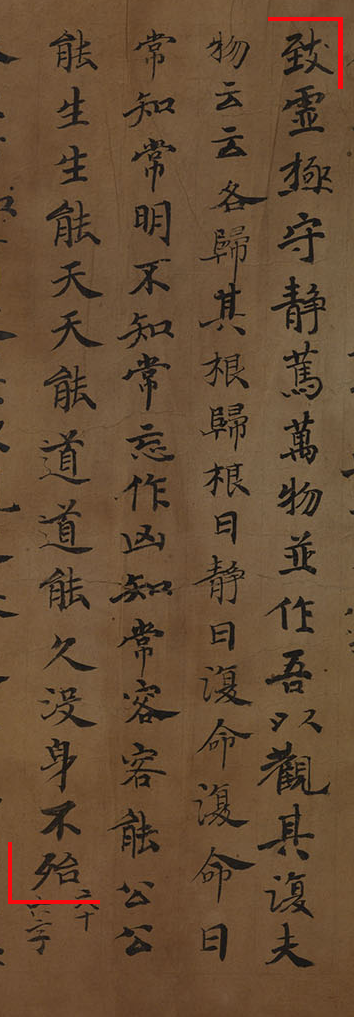 致虛極守静篤萬物並作吾以觀其復夫
物云云各歸其根歸根曰静曰復命復命曰
常知常明不知常忘作凶知常容容能公公
能生生能天天能道道能久没身不殆
六十